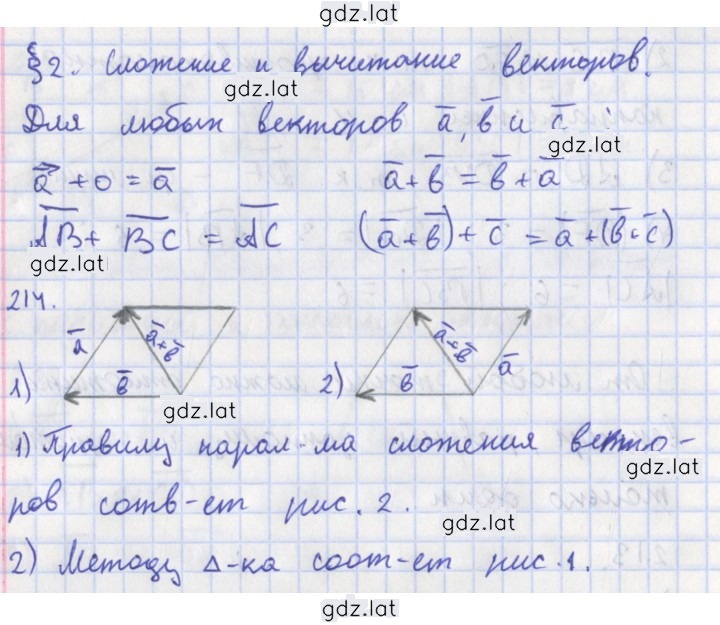 gdz.lat
§2. Сложение и вычитание векторов.
gdz.lat
Для любых векторов a̅, b̅ и c̅:
gdz.lat
a⃗ + 0 = a̅    a̅ + b̅ = b̅ + a̅
A̅B̅ + B̅C̅ = A̅C̅    (a̅ + b̅) + c̅ = a̅ + (b̅ + c̅)
gdz.lat
214.
a̅ a̅+b̅ a̅+b̅ a̅
1) b̅ 2) b̅
gdz.lat
1) Правилу парал-ма сложения векто-
gdz.lat
ров сотв-ет рис. 2.
gdz.lat
2) Методу Δ-ка соот-ет рис. 1.
gdz.lat